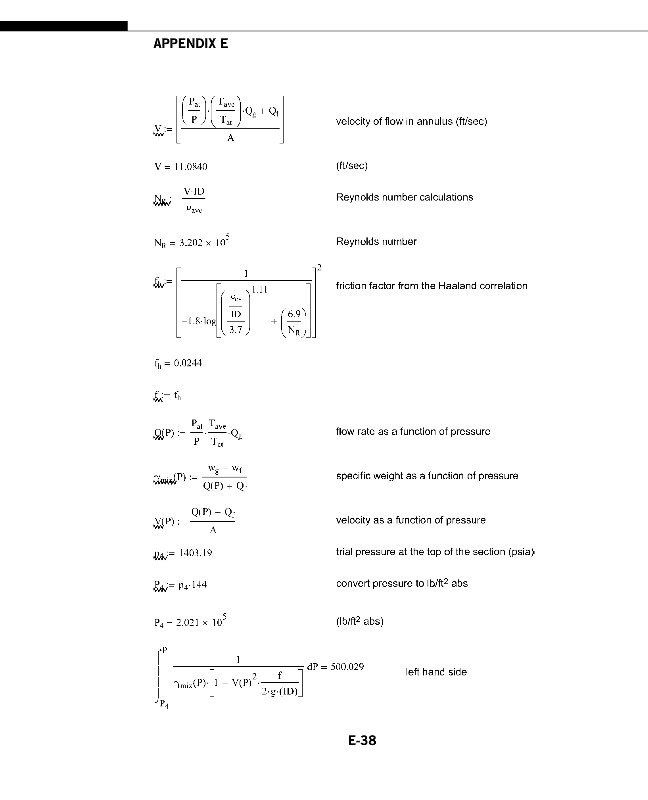 APPENDIX E
V := [ (P_at / P) · (T_ave / T_at) · Q_g + Q_f ] / A velocity of flow in annulus (ft/sec)
V = 11.0840 (ft/sec)
N_R : V·ID / υ_ave Reynolds number calculations
N_R = 3.202 × 10^5 Reynolds number
f_h := [ 1 / ( −1.8·log[ ( (e_av / ID) / 3.7 )^1.11 + (6.9 / N_R) ] ) ]^2 friction factor from the Haaland correlation
f_h = 0.0244
f := f_h
Q(P) := (P_at / P) · (T_ave / T_at) · Q_g flow rate as a function of pressure
γ_mix(P) := (w_g − w_f) / (Q(P) + Q_f) specific weight as a function of pressure
V(P) : (Q(P) − Q_f) / A velocity as a function of pressure
p_4 := 1403.19 trial pressure at the top of the section (psia)
P_4 := p_4·144 convert pressure to lb/ft² abs
P_4 = 2.021 × 10^5 (lb/ft² abs)
∫_{P_4}^{P} 1 / ( γ_mix(P)·[ 1 − V(P)^2 · f / (2·g·(ID)) ] ) dP = 500.029 left hand side
E-38